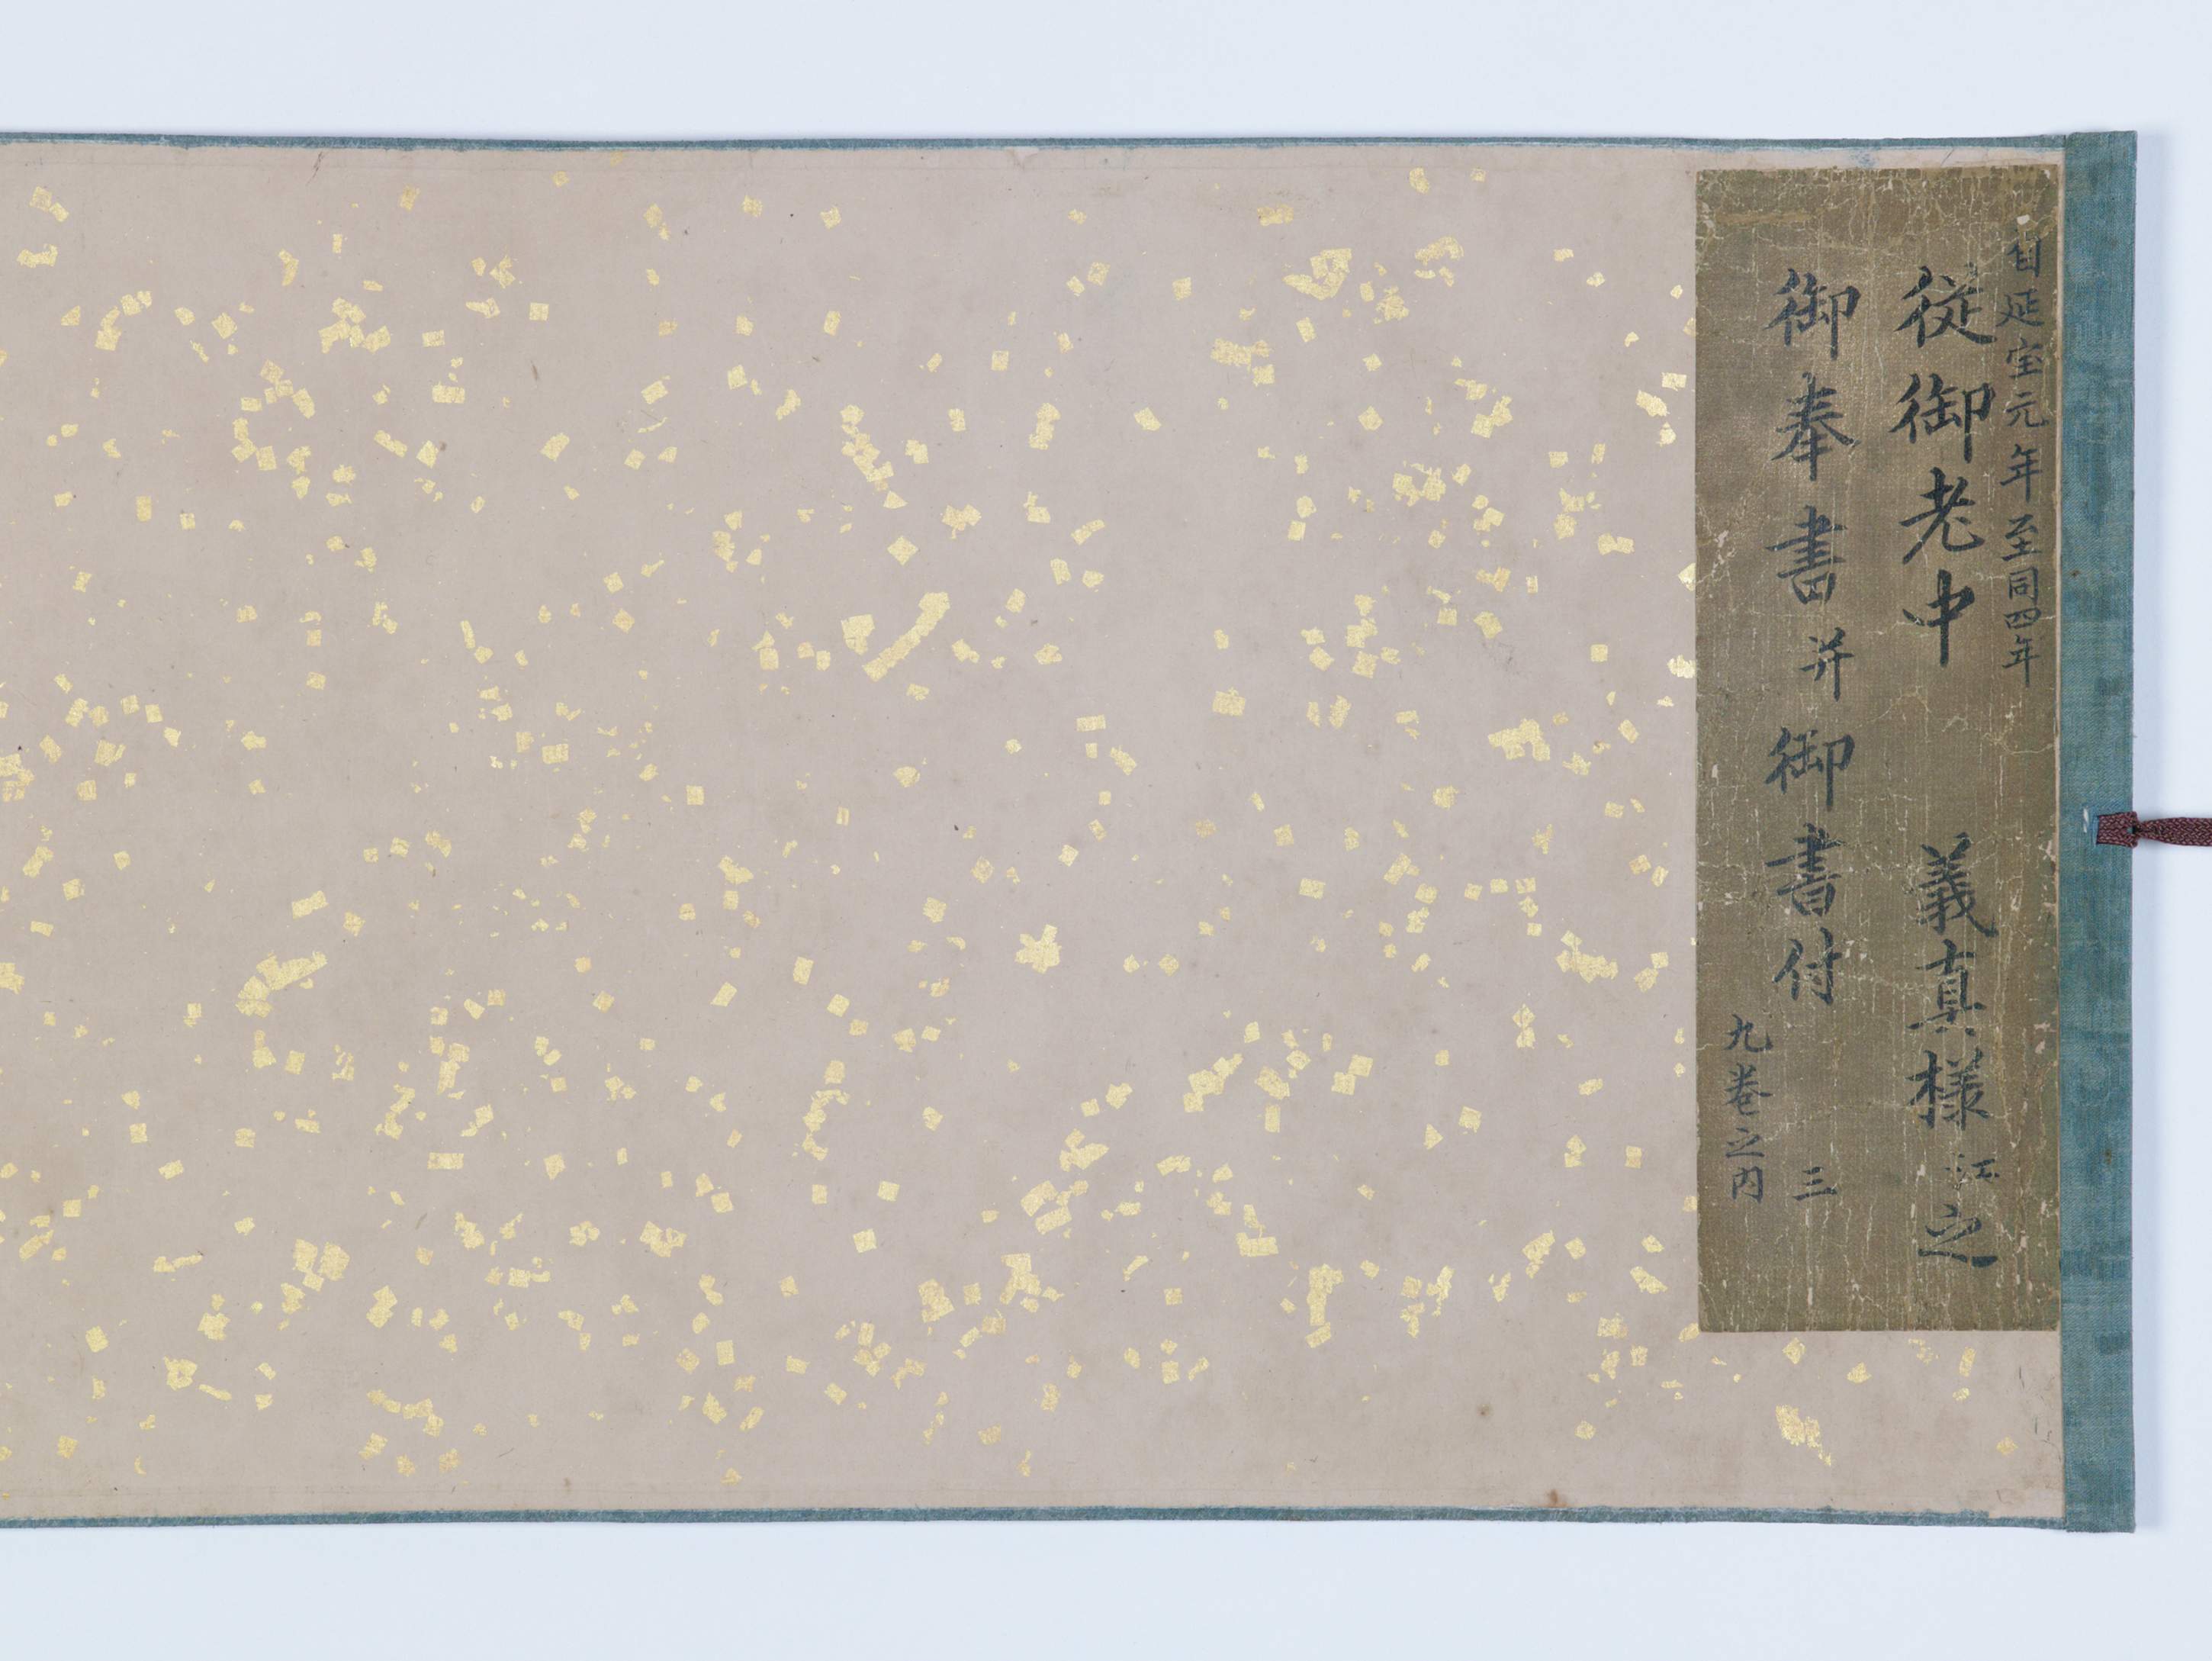 自延宝元年至同四年
従御老中　義真様江之
御奉書并御書付　三
九巻之内